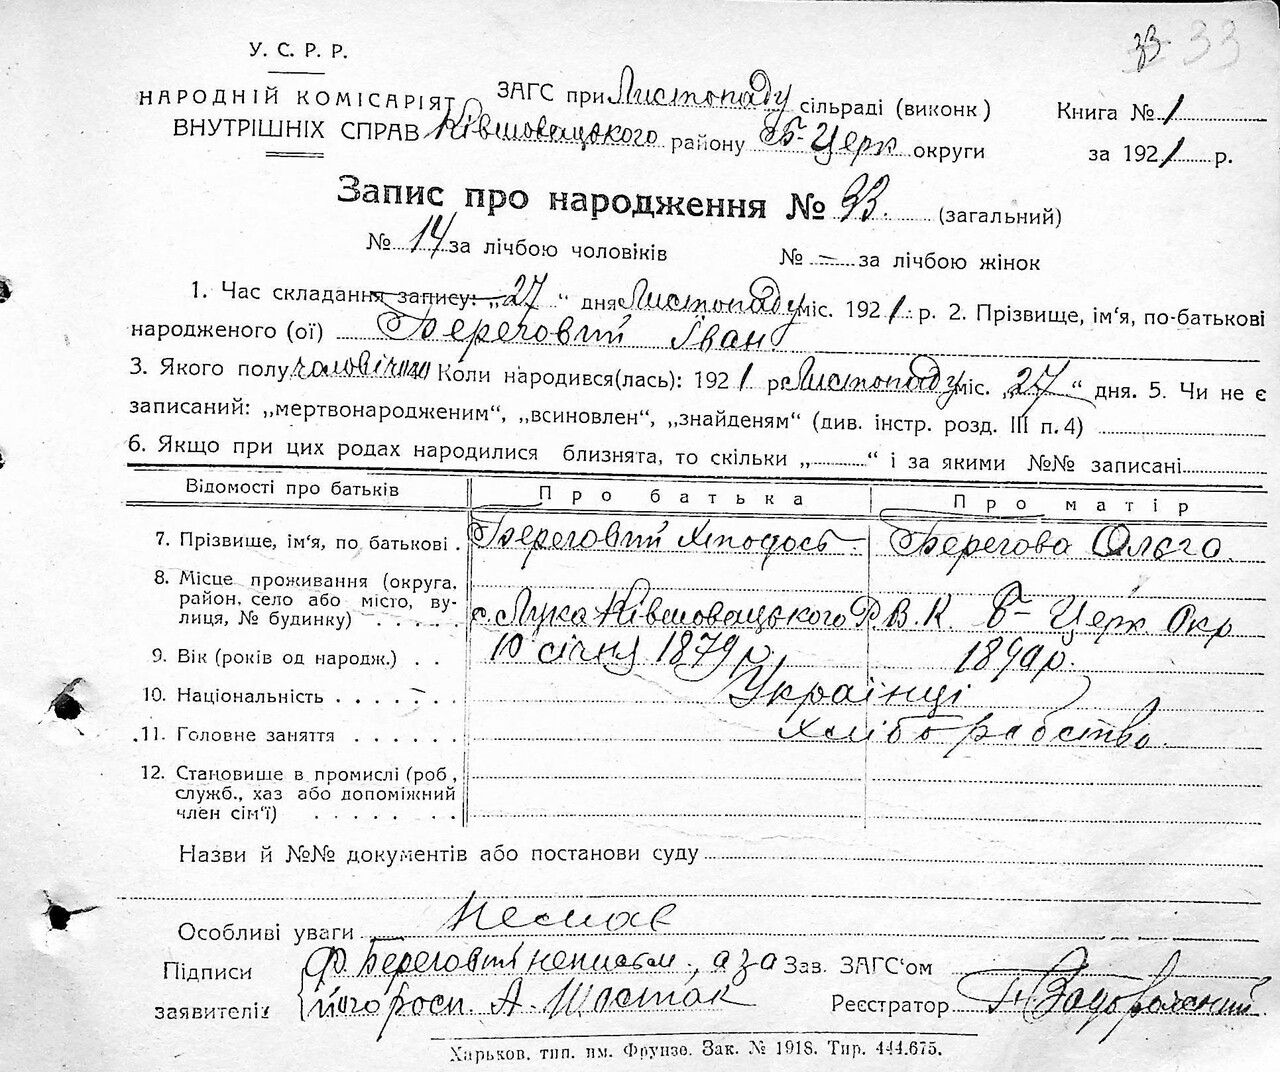 33 33
У. С. Р. Р.
НАРОДНІЙ КОМІСАРІЯТ
ВНУТРІШНІХ СПРАВ
ЗАГС при Листопаду сільраді (виконк)
Ківшовацького району Б-Церк округи
Книга № 1
за 1921 р.
Запис про народження № 33. (загальний)
№ 14 за лічбою чоловіків № — за лічбою жінок
1. Час складання запису: „27“ дня Листопаду міс. 1921 р. 2. Прізвище, ім‘я, по-батькові
народженого (ої) Береговий Іван
3. Якого полу чоловічого Коли народився(лась): 1921 р Листопаду міс. „27“ дня. 5. Чи не є
записаний: „мертвонародженим“, „всиновлен“, „знайденям“ (див. інстр. розд. III п.4)
6. Якщо при цих родах народилися близнята, то скільки „ “ і за якими №№ записані
Відомості про батьків Про батька Про матір
7. Прізвище, ім‘я, по батькові . Береговий Хтодось. Берегова Ольга.
8. Місце проживання (округа,
район, село або місто, ву-
лиця, № будинку) . . . . . с. Лука Ківшовацького Р.В.К. Б-Церк. Окр
9. Вік (років од народж.) . . 10 січня 1879 р. 1890 р.
10. Національність . . . . . . . Українці
11. Головне заняття . . . . . . Хліборобство.
12. Становище в промислі (роб.,
служб., хаз або допоміжний
член сім‘ї) . . . . . . . .
Назви й №№ документів або постанови суду
Особливі уваги Немає
Підписи
заявителів
Ф. Береговий неписьм., а за
його росп. А. Шостак
Зав. ЗАГС‘ом
Реєстратор
Харьков, тип. им. Фрунзе. Зак. № 1918. Тир. 444.675.